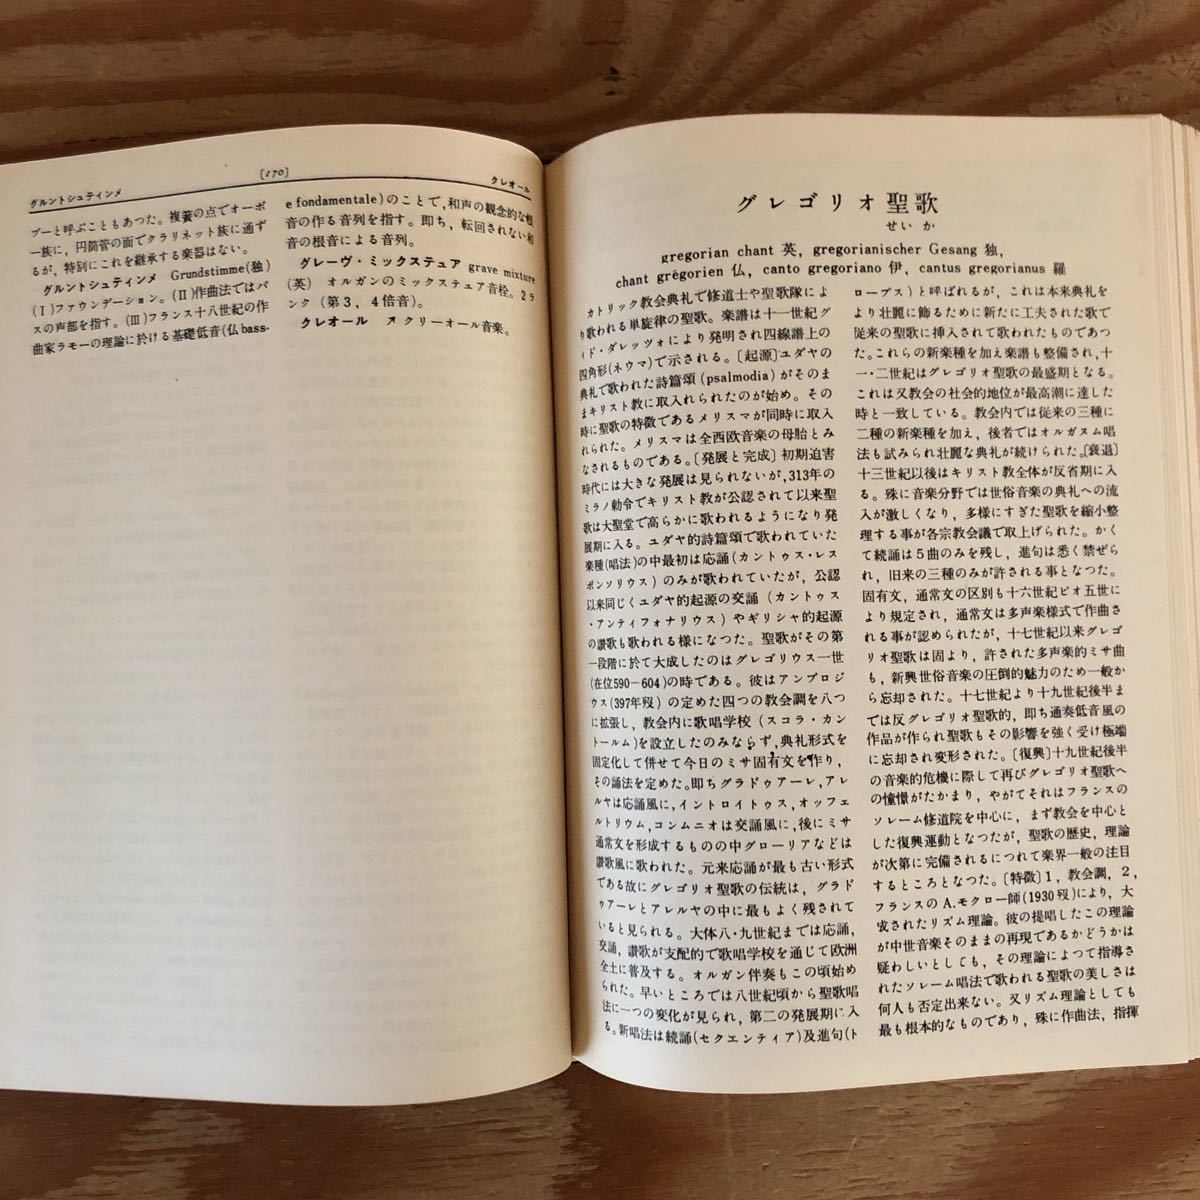 グルントシュティンメ
〔170〕
クレオール
プーと呼ぶこともあつた。複簧の点でオーボ
一族に，円筒管の面でクラリネット族に通ず
るが，特別にこれを継承する楽器はない。
グルントシュティンメ　Grundstimme(独)
(Ⅰ)ファウンデーション。(Ⅱ)作曲法ではバ
スの声部を指す。(Ⅲ)フランス十八世紀の作
曲家ラモーの理論に於ける基礎低音(仏 bass-
e fondamentale)のことで，和声の観念的な根
音の作る音列を指す。即ち，転回されない和
音の根音による音列。
グレーヴ・ミックステュア　grave mixture
(英)　オルガンのミックステュア音栓。2ラ
ンク（第3，4倍音）。
クレオール　↗クリーオール音楽。
グレゴリオ聖歌
せいか
gregorian chant 英，gregorianischer Gesang 独，
chant grégorien 仏，canto gregoriano 伊，cantus gregorianus 羅
カトリック教会典礼で修道士や聖歌隊によ
り歌われる単旋律の聖歌。楽譜は十一世紀グ
イド・ダレッツォにより発明され四線譜上の
四角形(ネウマ)で示される。〔起源〕ユダヤの
典礼で歌われた詩篇頌(psalmodia)がそのま
まキリスト教に取入れられたのが始め。その
時に聖歌の特徴であるメリスマが同時に取入
れられた。メリスマは全西欧音楽の母胎とみ
なされるものである。〔発展と完成〕初期迫害
時代には大きな発展は見られないが，313年の
ミラノ勅令でキリスト教が公認されて以来聖
歌は大聖堂で高らかに歌われるようになり発
展期に入る。ユダヤ的詩篇頌で歌われていた
楽種(唱法)の中最初は応誦(カントゥス・レス
ポンソリウス)のみが歌われていたが，公認
以来同じくユダヤ的起源の交誦（カントゥス
・アンティフォナリウス）やギリシャ的起源
の讃歌も歌われる様になつた。聖歌がその第
一段階に於て大成したのはグレゴリウス一世
(在位590−604)の時である。彼はアンブロジ
ウス(397年歿)の定めた四つの教会調を八つ
に拡張し，教会内に歌唱学校（スコラ・カン
トールム)を設立したのみならず，典礼形式を
固定化して併せて今日のミサ固有文を作り，
その誦法を定めた。即ちグラドゥアーレ，アレ
ルヤは応誦風に，イントロイトゥス，オッフェ
ルトリウム，コンムニオは交誦風に，後にミサ
通常文を形成するものの中グローリアなどは
讃歌風に歌われた。元来応誦が最も古い形式
である故にグレゴリオ聖歌の伝統は，グラド
ゥアーレとアレルヤの中に最もよく残されて
いると見られる。大体八・九世紀までは応誦，
交誦，讃歌が支配的で歌唱学校を通じて欧洲
全土に普及する。オルガン伴奏もこの頃始め
られた。早いところでは八世紀頃から聖歌唱
法に一つの変化が見られ，第二の発展期に入
る。新唱法は続誦(セクエンティア)及進句(ト
ロープス)と呼ばれるが，これは本来典礼を
より壮麗に飾るために新たに工夫された歌で
従来の聖歌に挿入されて歌われたものであつ
た。これらの新楽種を加え楽譜も整備され，十
一・二世紀はグレゴリオ聖歌の最盛期となる。
これは又教会の社会的地位が最高潮に達した
時と一致している。教会内では従来の三種に
二種の新楽種を加え，後者ではオルガヌム唱
法も試みられ壮麗な典礼が続けられた。〔衰退〕
十三世紀以後はキリスト教全体が反省期に入
る。殊に音楽分野では世俗音楽の典礼への流
入が激しくなり，多様にすぎた聖歌を縮小整
理する事が各宗教会議で取上げられた。かく
て続誦は5曲のみを残し，進句は悉く禁ぜら
れ，旧来の三種のみが許される事となつた。
固有文，通常文の区別も十六世紀ピオ五世に
より規定され，通常文は多声楽様式で作曲さ
れる事が認められたが，十七世紀以来グレゴ
リオ聖歌は固より，許された多声楽的ミサ曲
も，新興世俗音楽の圧倒的魅力のため一般か
ら忘却された。十七世紀より十九世紀後半ま
では反グレゴリオ聖歌的，即ち通奏低音風の
作品が作られ聖歌もその影響を強く受け極端
に忘却され変形された。〔復興〕十九世紀後半
の音楽的危機に際して再びグレゴリオ聖歌へ
の憧憬がたかまり，やがてそれはフランスの
ソレーム修道院を中心に，まず教会を中心と
した復興運動となつたが，聖歌の歴史，理論
が次第に完備されるにつれて楽界一般の注目
するところとなつた。〔特徴〕1，教会調，2，
フランスの A.モクロー師(1930歿)により，大
成されたリズム理論。彼の提唱したこの理論
が中世音楽そのままの再現であるかどうかは
疑わしいとしても，その理論によつて指導さ
れたソレーム唱法で歌われる聖歌の美しさは
何人も否定出来ない。又リズム理論としても
最も根本的なものであり，殊に作曲法，指揮